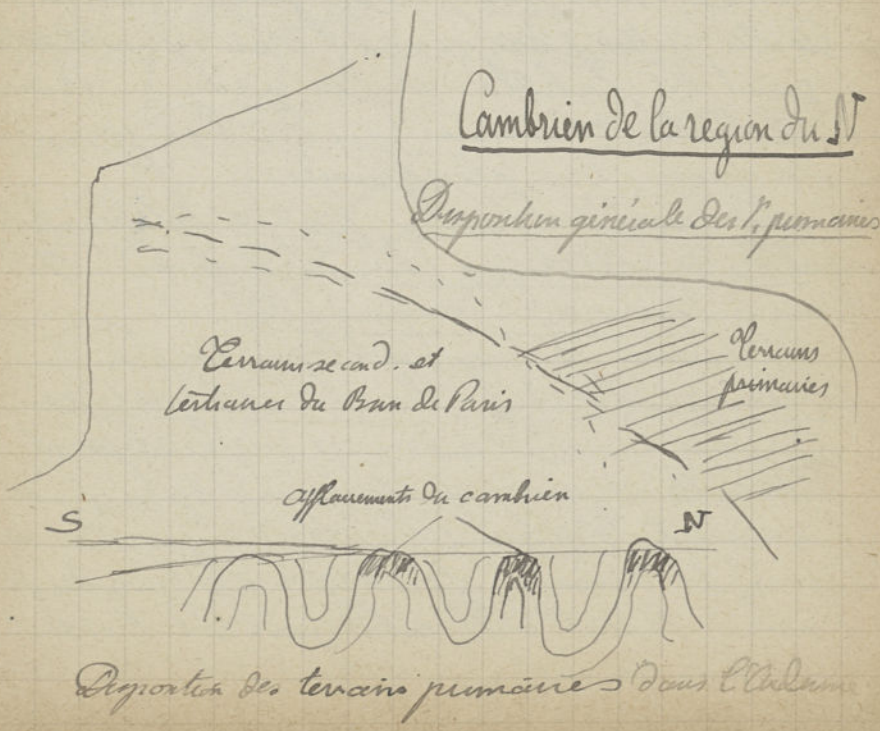 Cambrien de la region du N
Disposition générale des T. primaires
Terrains second. et
tertiaires du Bsin de Paris
Terrains
primaires
affleurements du cambrien
S
N
Disposition des terrains primaires dans l'Ardenne